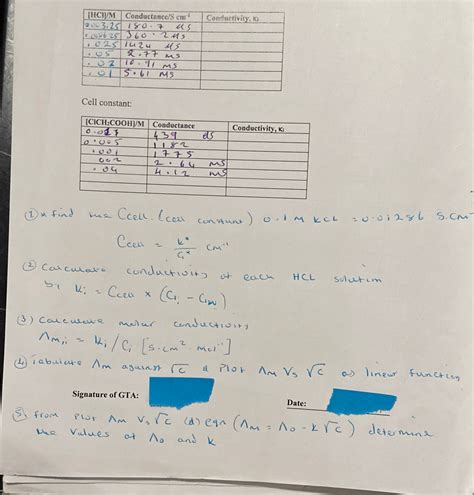 [HCl]/M Conductance/S cm⁻¹ Conductivity, κᵢ
180.7 μs
360.2 μs
.025 1424 μs
.05 2.77 ms
ms
.01 5.61 ms
Cell constant:
[ClCH₂COOH]/M Conductance Conductivity, κᵢ
439
0.005 1182
.001 1775
002 2.64 ms
.04 4.12 ms
① find the Ccell (cell constant) 0.1M KCl = 0.01286 S.cm
Ccell = K*/G* cm⁻¹
② Calculate conductivity of each HCL solution
by Ki = Ccell x (Gi -
③ Calculate molar conductivity
Λm,i = Ki/Ci [S.cm² mol⁻¹]
④ tabulate Λm against √C & Plot Λm Vs √C as linear function
Signature of GTA: Date:
⑤ from plot Λm Vs √C & eqn (Λm = Λo - k√C) determine
the values of Λo and k